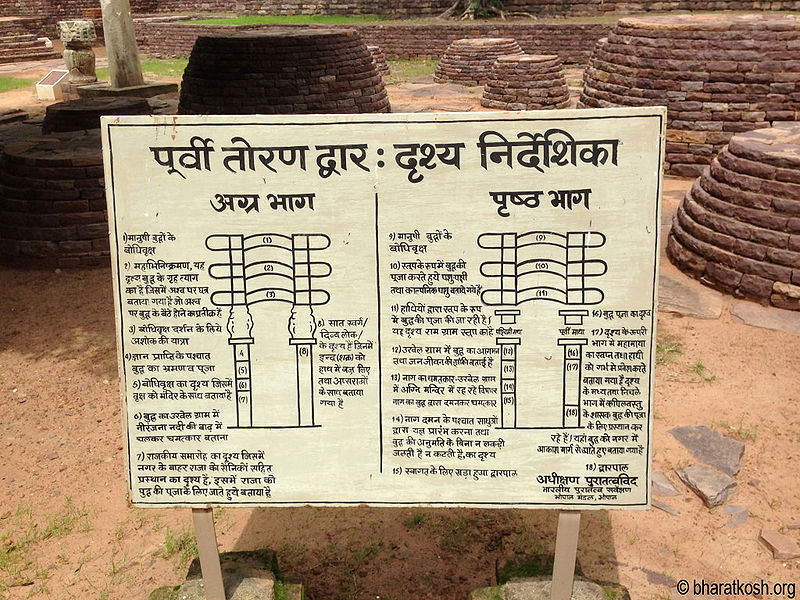 पूर्वी तोरण द्वार : दृश्य निर्देशिका
अग्र भाग
१) मानुषी बुद्धों के
बोधिवृक्ष
२) महाभिनिष्क्रमण, यह
दृश्य बुद्ध के गृह त्याग
का है जिसमें अश्व पर छत्र
बताया गया है जो अश्व
पर बुद्ध के बैठे होने का प्रतीक है
३) बोधिवृक्ष दर्शन के लिये
अशोक की यात्रा
४) ज्ञान प्राप्ति के पश्चात
बुद्ध का भ्रमण व पूजा
५) बोधिवृक्ष का दृश्य जिसमें
वृक्ष को मंदिर के साथ बताया है
६) बुद्ध का उरवेल ग्राम में
नीरंजना नदी की बाढ़ में
चलकर चमत्कार बताना
७) राजकीय समारोह का दृश्य जिसमें
नगर के बाहर राजा का सैनिकों सहित
प्रस्थान का दृश्य है, इसमें राजा को
बुद्ध की पूजा के लिए जाते हुये बताया है
(1)
(2)
(3)
4
(5)
(6)
(7)
(8)
८) सात स्वर्ग/
दिव्य लोक/
के दृश्य हैं जिनमें
इन्द्र (शक्र) को
हाथ में वज्र लिए
तथा अप्सराओं
के साथ बताया
गया है
पृष्ठ भाग
९) मानुषी बुद्धों के
बोधिवृक्ष
१०) स्तूप के रूप में बुद्ध की
पूजा करते हुये पशु-पक्षी
तथा काल्पनिक पशु बताये गये हैं
११) हाथियों द्वारा स्तूप के रूप
में बुद्ध की पूजा की जा रही है।
यह दृश्य राम ग्राम स्तूप का है
१२) उरवेल ग्राम में बुद्ध का आगमन
तथा जन जीवन की झांकी बताई है
१३) नाग का चमत्कार-उरवेल ग्राम
में अग्नि मन्दिर में रह रहे विषधर
नाग का बुद्ध द्वारा दमन कर चमत्कार
१४) नाग दमन के पश्चात साधुओं
द्वारा यज्ञ प्रारंभ करना तथा
बुद्ध की अनुमति के बिना न लकड़ी
जलती है न कटती है, का दृश्य
१५) स्वागत के लिए खड़ा हुआ द्वारपाल
(9)
(10)
(11)
पूर्वी भाग
(12)
(13)
(14)
(15)
(16)
(17)
(18)
१६) बुद्ध पूजा का दृश्य
१७) दृश्य के ऊपरी
भाग में महामाया
का स्वप्न तथा हाथी
को गर्भ में प्रवेश करते
बताया गया है दृश्य
के मध्य तथा निचले
भाग में कपिलवस्तु
के शासक बुद्ध की पूजा
के लिए प्रस्थान कर
रहे हैं। यहाँ बुद्ध को नगर में
आकाश मार्ग से आते हुए बताया गया है
१८) द्वारपाल
अधीक्षण पुरातत्वविद
भारतीय पुरातत्व सर्वेक्षण
भोपाल मंडल, भोपाल
© bharatkosh.org